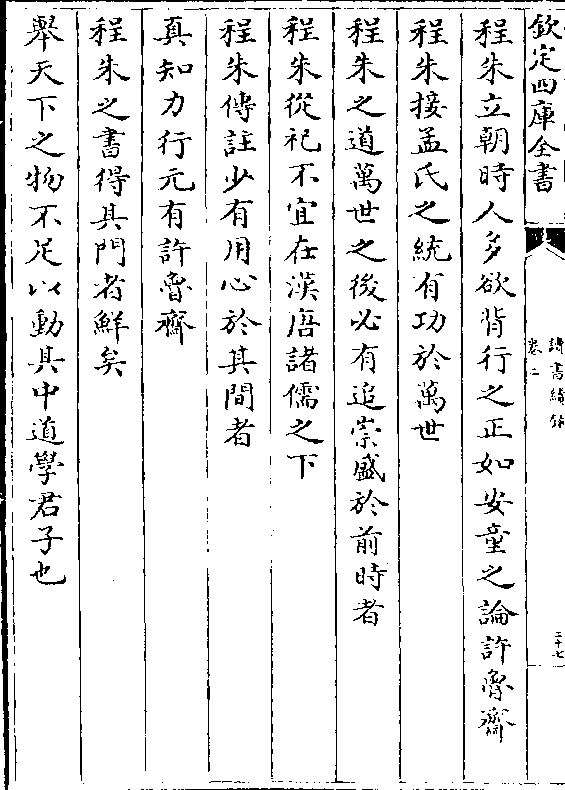 欽定四庫全書
讀書續錄
卷二
二十七
程朱立朝時人多欲背行之正如安童之論許魯齋
程朱接孟氏之統有功於萬世
程朱之道萬世之後必有追崇盛於前時者
程朱從祀不宜在漢唐諸儒之下
程朱傳註少有用心於其間者
真知力行元有許魯齋
程朱之書得其門者鮮矣
舉天下之物不足以動其中道學君子也